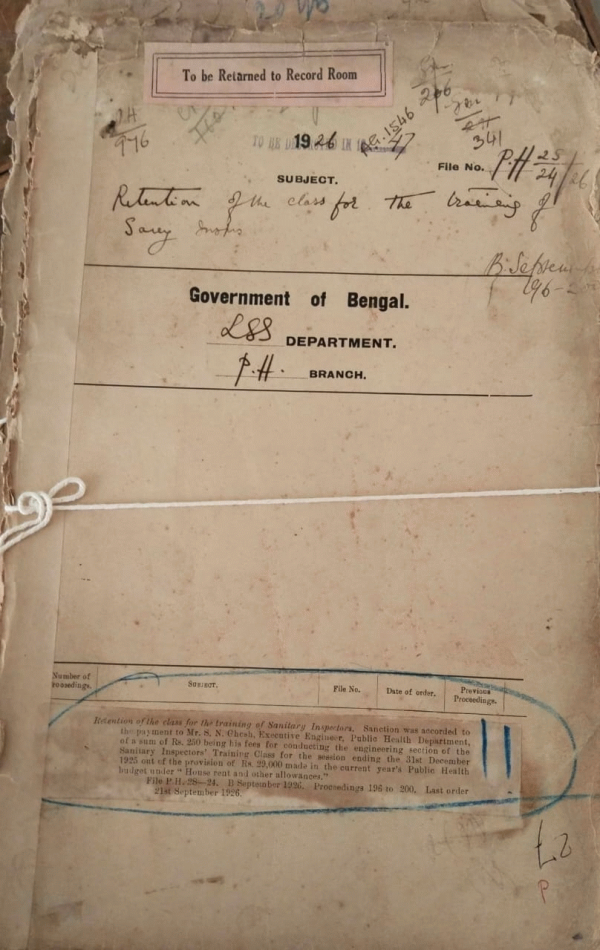 To be Returned to Record Room
24
976
206
341
TO BE DESTROYED IN
1926
1546
47
File No. P.H 2S/24/26
SUBJECT.
Retention of the class for the training of
Sany Insprs
B. September
196-2
Government of Bengal.
LSS DEPARTMENT.
P.H. BRANCH.
Number of
Proceedings.
SUBJECT.
File No.
Date of order.
Previous
Proceedings.
Retention of the class for the training of Sanitary Inspectors. Sanction was accorded to
the payment to Mr. S. N. Ghosh, Executive Engineer, Public Health Department,
of a sum of Rs. 250 being his fees for conducting the engineering section of the
Sanitary Inspectors' Training Class for the session ending the 31st December
1925 out of the provision of Rs. 29,000 made in the current year's Public Health
budget under "House rent and other allowances."
File P.H. 2S—24. B September 1926. Proceedings 196 to 200. Last order
21st September 1926.
P